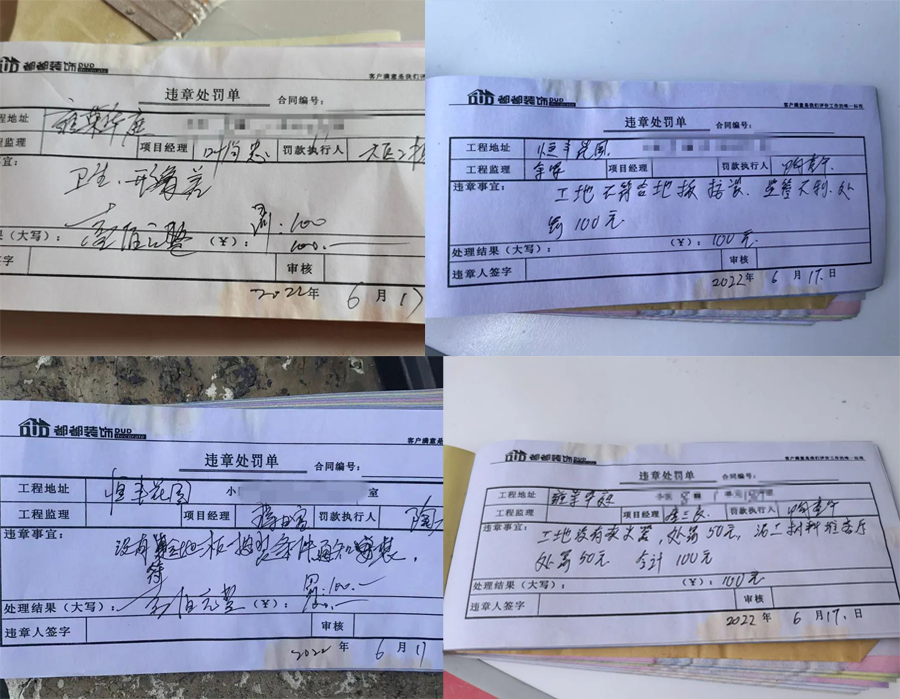 都都装饰 DUD
decorate
客户满意是我们评
违章处罚单
合同编号:
程地址
程监理
项目经理
罚款执行人
事宜:
卫生、形象差
果(大写):
(¥):
罚:100
100.—
字
审核
2022年 6月17
都都装饰 DUD
decorate
客户满意是我们评价工作的唯一标准
违章处罚单
合同编号:
工程地址 恒丰花园
工程监理
项目经理
罚款执行人
违章事宜:
工地不符合地板安装、监管不利.处
罚100元
处理结果(大写):
(¥):100元
违章人签字
审核
2022年 6月17日
都都装饰 DUD
decorate
客户满意是
违章处罚单
合同编号:
工程地址 恒丰花园 小 室
工程监理
项目经理
罚款执行人
违章事宜:
没有 符合地板 条件通知安装.
处理结果(大写): 壹佰元整 (¥): 罚:100.—
违章人签字
审核
2022年 6月17
都都装饰 DUD
decorate
客户满意是我们评价工作的唯一标准
违章处罚单
合同编号:
工程地址
工程监理
项目经理
罚款执行人
违章事宜:
工地没有灭火器,处罚50元,沾工材料堆客厅
处罚50元 合计100元
处理结果(大写):
(¥):100元
违章人签字
审核
2022年 6月17日